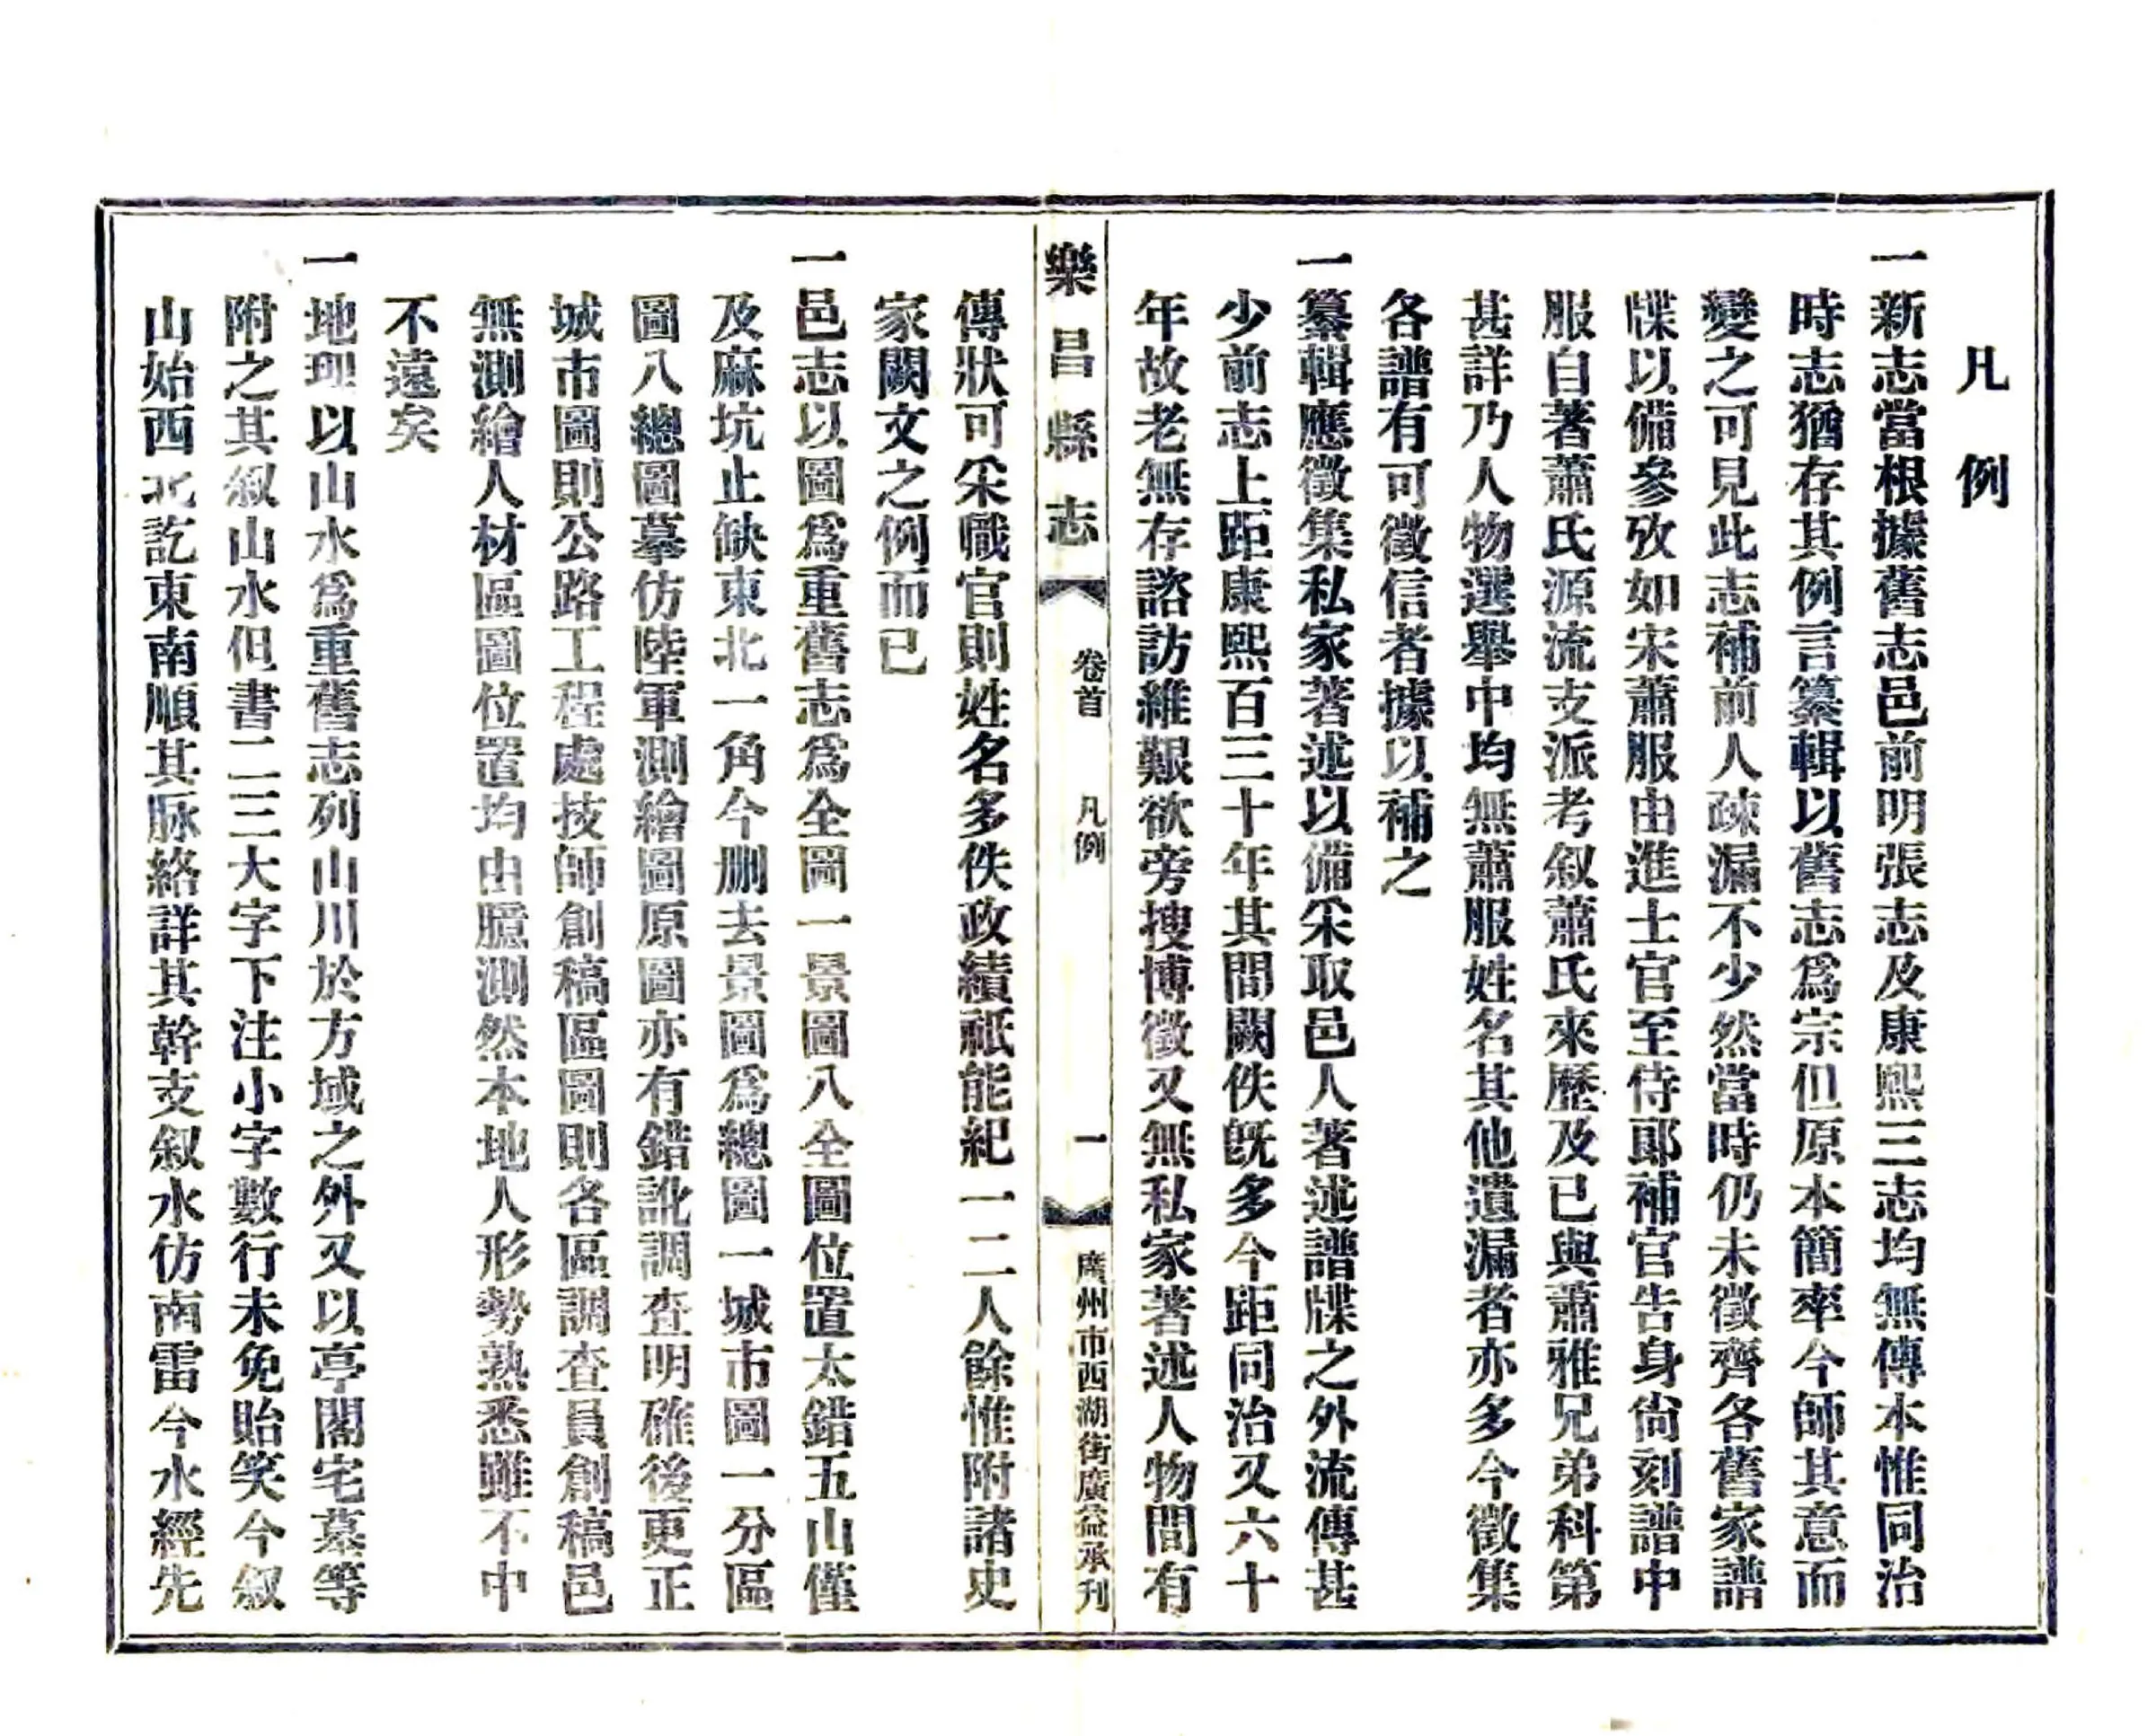 凡例
一新志當根據舊志邑前明張志及康熙三志均無傳本惟同治
時志猶存其例言纂輯以舊志爲宗但原本簡率今師其意而
變之可見此志補前人疎漏不少然當時仍未徵齊各舊家譜
牒以備參攷如宋蕭服由進士官至侍郎補官告身尙刻譜中
服自著蕭氏源流支派考叙蕭氏來歷及已與蕭雅兄弟科第
甚詳乃人物選舉中均無蕭服姓名其他遺漏者亦多今徵集
各譜有可徵信者據以補之
一纂輯應徵集私家著述以備采取邑人著述譜牒之外流傳甚
少前志上距康熙百三十年其間闕佚旣多今距同治又六十
年故老無存諮訪維艱欲旁搜博徵又無私家著述人物間有
樂昌縣志
卷首
凡例
一
廣州市西湖街廣益承刊
傳狀可采職官則姓名多佚政績祇能紀一二人餘惟附諸史
家闕文之例而已
一邑志以圖爲重舊志爲全圖一景圖八全圖位置太錯五山僅
及麻坑止缺東北一角今删去景圖爲總圖一城市圖一分區
圖八總圖摹仿陸軍測繪圖原圖亦有錯訛調查明確後更正
城市圖則公路工程處技師創稿區圖則各區調查員創稿邑
無測繪人材區圖位置均由臆測然本地人形勢熟悉雖不中
不遠矣
一地理以山水爲重舊志列山川於方域之外又以亭閣宅墓等
附之其叙山水但書二三大字下注小字數行未免貽笑今叙
山始西北訖東南順其脉絡詳其幹支叙水仿南雷今水經先